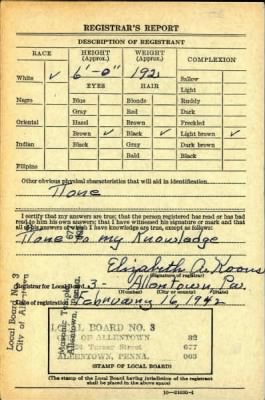 REGISTRAR'S REPORT
DESCRIPTION OF REGISTRANT
RACE HEIGHT (Approx.) WEIGHT (Approx.) COMPLEXION
White ✓ 6'-0" 192 Sallow
EYES HAIR Light
Negro Blue Blonde Ruddy
Gray Red Dark
Oriental Hazel Brown Freckled
Brown ✓ Black ✓ Light brown ✓
Indian Black Gray Dark brown
Bald Black
Filipino
Other obvious physical characteristics that will aid in identification
None
I certify that my answers are true; that the person registered has read or has had
read to him his own answers; that I have witnessed his signature or mark and that
all of his answers of which I have knowledge are true, except as follows:
None to my Knowledge
Elizabeth A. Koons
(Signature of registrar)
Registrar for Local Board 3 - Allentown, Pa.
(Number) (City or county) (State)
Date of registration February 16, 1942
Local Board No. 3
City of Allentown
Masonic Temple
Allentown,
LOCAL BOARD NO. 3
OF ALLENTOWN 82
Turner Street 677
ALLENTOWN, PENNA. 003
(STAMP OF LOCAL BOARD)
(The stamp of the Local Board having jurisdiction of the registrant
shall be placed in the above space)